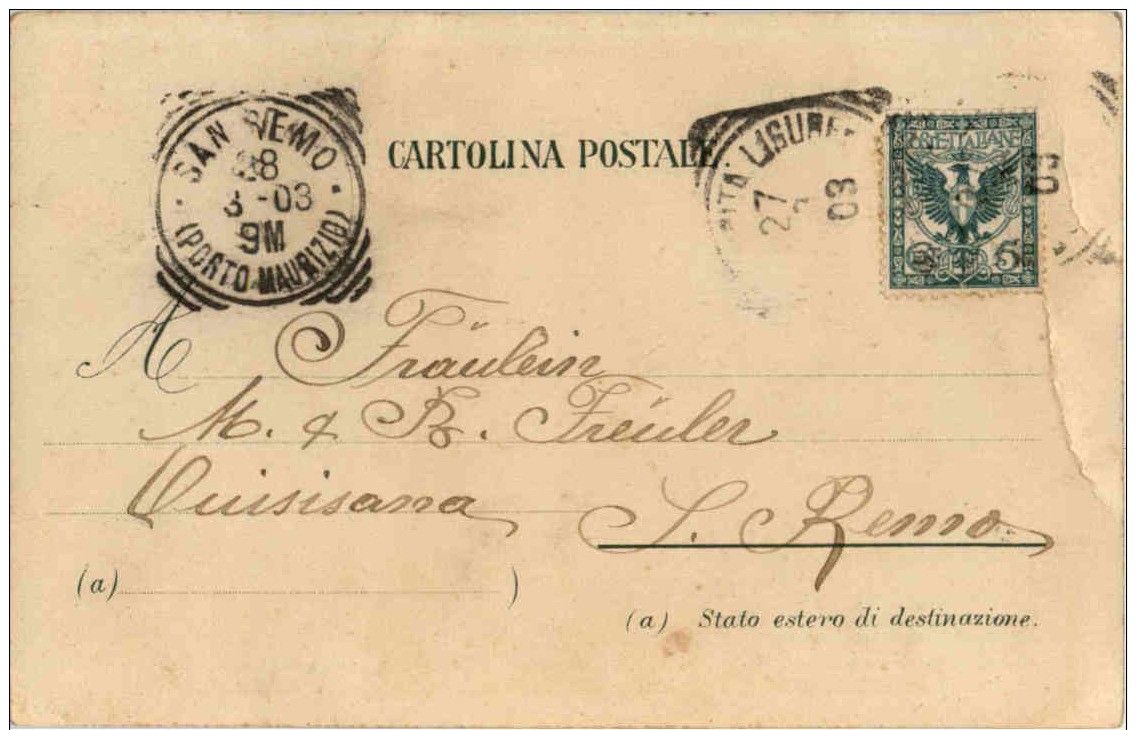 SAN REMO
28
3-03
9M
(PORTO MAURIZIO)
CARTOLINA POSTALE.
LIGURE
27
03
POSTE ITALIANE
5
03
A Fräulein
M. & R. Freuler
Quisisana
S. Remo
(a) )
(a) Stato estero di destinazione.